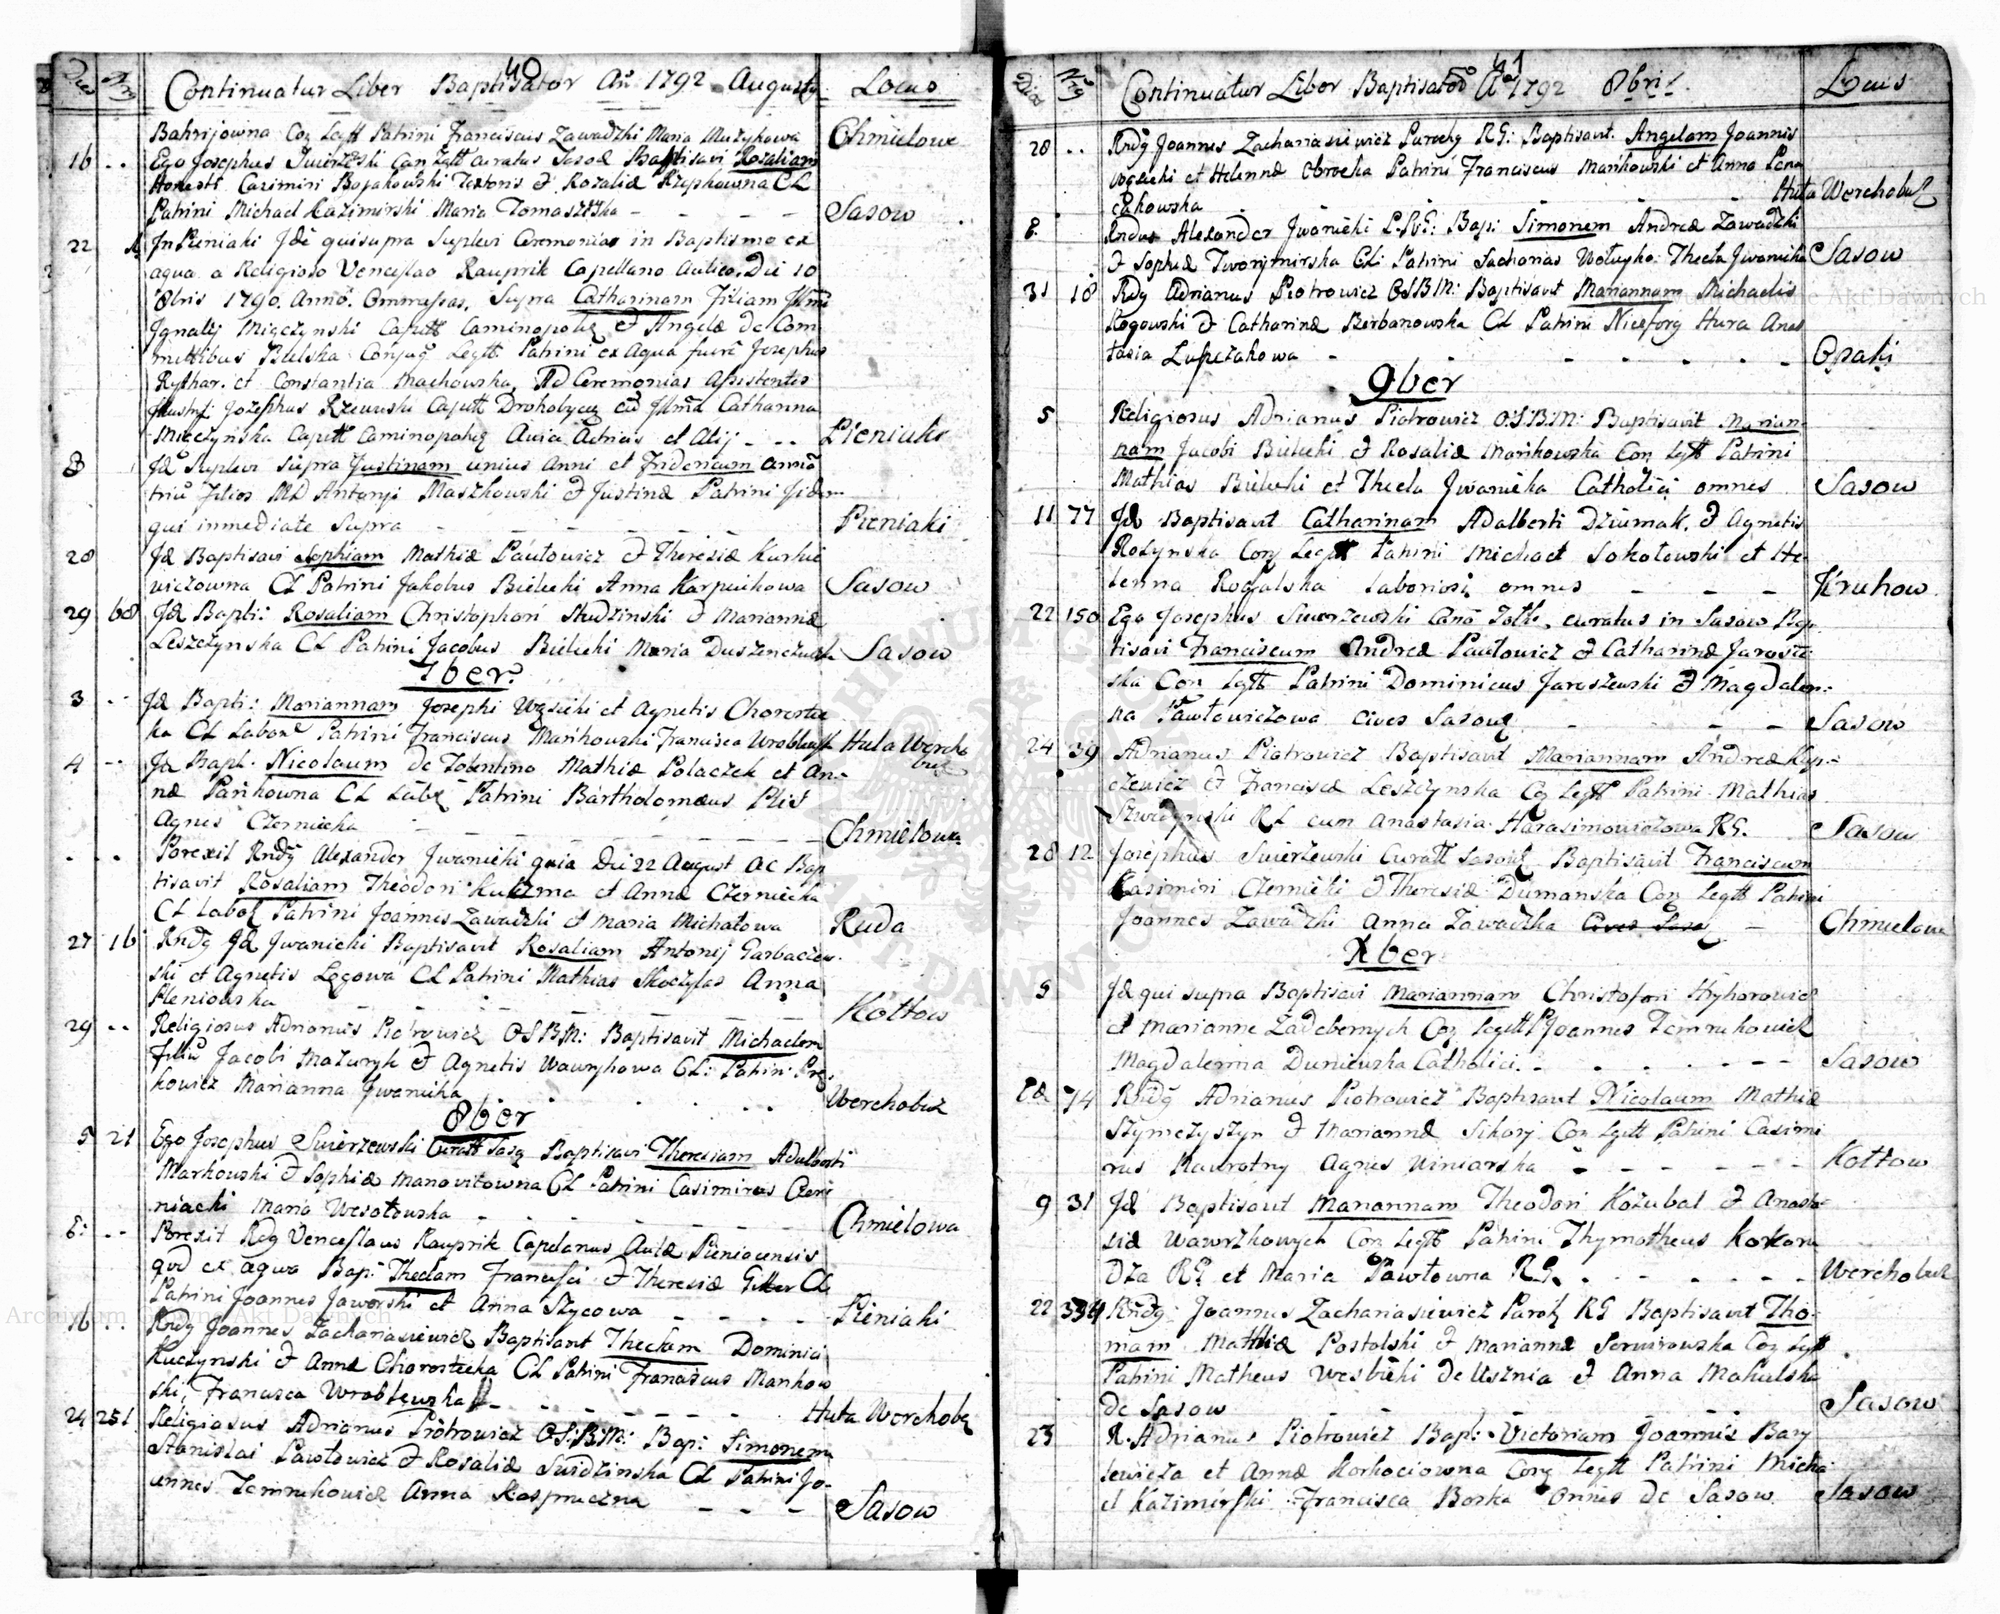 40
Dies Nrus Continuatur Liber Baptisator Aõ 1792 Augusti Locus
Bahrijowna Con Legtt Patrini Franciscus Zawadzki Maria Muzykowa Chmielowe
16 .. Ego Josephus Swierzewski Can Zoltt Curatus Sasoæ Baptisavi Rosaliam
Honesti Casimiri Bojakowski Textoris & Rozaliæ Rzepkowna CL
Patrini Michael Kazimirski Maria Tomaszeska - - - - Sasow
22 In Pieniaki Idẽ qui supra Suplevi Ceremonias in Baptismo ex
aqua a Religioso Venceslao Rauprik Capellano Aulico, Die 10
8bris 1790. Anno. Ommissas, Supra Catharinam Filiam Illmi
Ignatij Miączynski Capitt Caminopolẽ & Angelæ de Com
mittibus Bielska Conjug Legtt Patrini ex Aqua fuere Josephus
Rythar. et Constantia Machowska, Ad Ceremonias Assistentes
Illustrs: Josephus Rzewuski Capitt Drohobycẽ cũ Illma Catharina
Miączyńska Capitt Caminopolẽ Avia Adrias et Alij - - - Pieniaki
8 Idẽ Suplevi supra Justinam unius Anni et Fridericum anno
triũ Filios MD Antonji Maszkowski & Justinæ Patrini Fidem
qui immediate Supra - - - - Pieniaki
20 Id Baptisavi Sophiam Mathiæ Pautowicz & Theresiæ Kurkie
wiczowna CL Patrini Jakobus Bielecki Anna Karpiuchowa Sasow
29 68 Id Bapti: Rosaliam Christophori Studzinski & Mariannæ
Leszczynska CL Patrini Jacobus Bielecki Maria Duszenczuck Sasow
7ber
3 .. Id Bapti: Mariannam Josephi Wąsicki et Agnetis Chorostec
ka CL Labor Patrini Franciscus Mańkowski Francisca Wroblewsk Huta Wercho
buz
4 .. Id Bapt. Nicolaum de Tolentino Mathiæ Polaczek et An-
næ Pańkowna CL Labẽ Patrini Bartholomæus Plis
Agnes Czernicka - - - - - - Chmielowa
. . . Porexit Rndg Alexander Jwanicki quia Die 22 August AC Bap
tisavit Rosaliam Theodori Kuczma et Annæ Czernicka
CL Labor Patrini Joannes Zawadzki et Maria Michałowa Ruda
27 16 Rndg Id Jwanicki Baptisavit Rosaliam Antonij Garbaczew
ski et Agnetis Łęgowa CL Patrini Mathias Skoczylas Anna
Pleniowska - - - - Kottow
29 .. Religiosus Adrianus Piotrowicz OSBM: Baptisavit Michaelem
Filiũ Jacobi Mazuryk & Agnetis Wawrykowa CL: Patrin: Prẽ.
kowicz Marianna Jwanicka Werchobuz
8ber
5 21 Ego Josephus Swierzewski Curatt Sasẽ Baptisavi Theresiam Adalberti
Markowski & Sophiæ Manowitowna CL Patrini Casimirus Czer
niacki Maria Wesołowska - - - - - - Chmielowa
6: .. Porexit Rdg Venceslaus Rauprik Capelanus Aulæ Pieniacensis
qvod ex aqwa Bap: Theclam Francisci & Theresiæ Gitter CL
Patrini Joannes Jaworski et Anna Szycowa - - - - Pieniaki
16 .. Rndg Joannes Zachariasiewicz Baptisavit Theclam Dominici
Kuczynski & Annæ Chorostecka CL Patrini Franciscus Mankow
ski, Francisca Wroblewska - - - - - - Huta Werchobẽ
24 251 Religiosus Adrianus Piotrowicz OS:B:M: Bap: Simonem
Stanislai Pawłowicz & Rosaliæ Swidzinska CL Patrini Jo-
annes Temruchowicz Anna Kaspruczna - - - Sasow
41
Dies Nrg Continuatur Liber Baptisatoõ Aõ 1792 8bris. Locus
20 .. Rndg Joannes Zachariasiewicz Parochg RG: Baptisavit. Angelam Joannis
Wasicki et Helennæ Obrocka Patrini Franciscus Mańkowski et Anna Pana
czkowska Huta Werchobuz
8. Rndus Alexander Jwanicki P.RG: Bap: Simonem Andreæ Zawadzki
& Sophiæ Tworzmirska CL: Patrini Zacharias Wołuyko. Thecla Jwanicka Sasow
31 18 Rndg Adrianus Piotrowicz OSBM: Baptisavit Mariannam Michaelis
Rogowski & Catharinæ Berbanowska CL Patrini Niceforg Hura Anas
tasia Łupczakowa - - - - - - Opaki
9ber
5 Religiosus Adrianus Piotrowicz O:S.B.M: Baptisavit Marian-
nam Jacobi Bielecki & Rosaliæ Mańkowska Con Legtt Patrini
Mathias Bielecki et Thecla Jwanicka Catholici omnes Sasow
11 77 Id Baptisavit Catharinam Adalberti Dziumak. & Agnetis
Rozynska Conj Legtt Patrini Michael Sokołowski et He-
lenna Rogalska Laboriosi omnes - - - Kruhow
22 150 Ego Josephus Swierzewski Cano Zolk. curatus in Sasow Bap
tisavi Franciscum Andreæ Pautowicz & Catharinæ Jaroszc
ska Con Legtt Patrini Dominicus Jaroszewski & Magdalen-
na Pawłowiczowa cives Sasoweẽ - - - Sasow
24 39 Adrianus Piotrowicz Baptisavit Mariannam Andreæ Kup-
czewicz & Franciscæ Leszczynska Con Legtt Patrini Mathias
RL cum Anastasia Harasimowiczowa RG. Sasow
28 12 Josephus Swierzewski Curatt Sasovẽ Baptisavit Franciscum
Casimiri Czernicki & Theresiæ Dumanska Con Legtt Patrini
Joannes Zawadzki Anna Zawadzka Cives Saso - Chmielowa
Xber
5 Id qui supra Baptisavi Mariannam Christofori Hryhorowicz
et Marianne Zadebernych Con Legtt P Joannes Temruchowicz
Magdalenna Duniewska Catholici. - . . . - - - Sasow
Ed 74 Rndg Adrianus Piotrowicz Baptisavit Nicolaum Mathiæ
Szymczyszyn & Mariannæ Sikorj Con Legtt Patrini Casimi
rus Nawrotny Agnes Winiarska - - - - - Kottow
9 31 Id Baptisavit Mariannam Theodori Kozubal & Anasta-
siæ Wawrzkowych Con Legtt Patrini Thymotheus Korkoru
Dza RG et Maria Pawłowna RG. - - - - - Werchobuz
22 334 Rndg: Joannes Zachariasiewicz Paroh RG Baptisavit Tho-
mam Mathiæ Postolski & Mariannæ Serwirowska Con Legtt
Patrini Matheus Wesbicki de Usznia & Anna Mahulska
de Sasow - - - Sasow
23 R. Adrianus Piotrowicz Bap: Victoriam Joannis Bazy
lewicza et Annæ Korkociowna Conj Legtt Patrini Micha
el Kazimirski Francisca Borka omnes de Sasow Sasow
Archiwum Główne Akt Dawnych